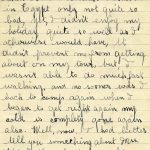 in Egypt only not quite so
bad, yes, I didn't enjoy my
holiday quite so well as I
otherwise would have, it
didn't prevent me from getting
about on my tour, but I
wasn't able to do much fast
walking, and no sooner was I
back to camp again when I
began to get right again, my
cold is completely gone again
also. Well, now, I had better
tell you something about